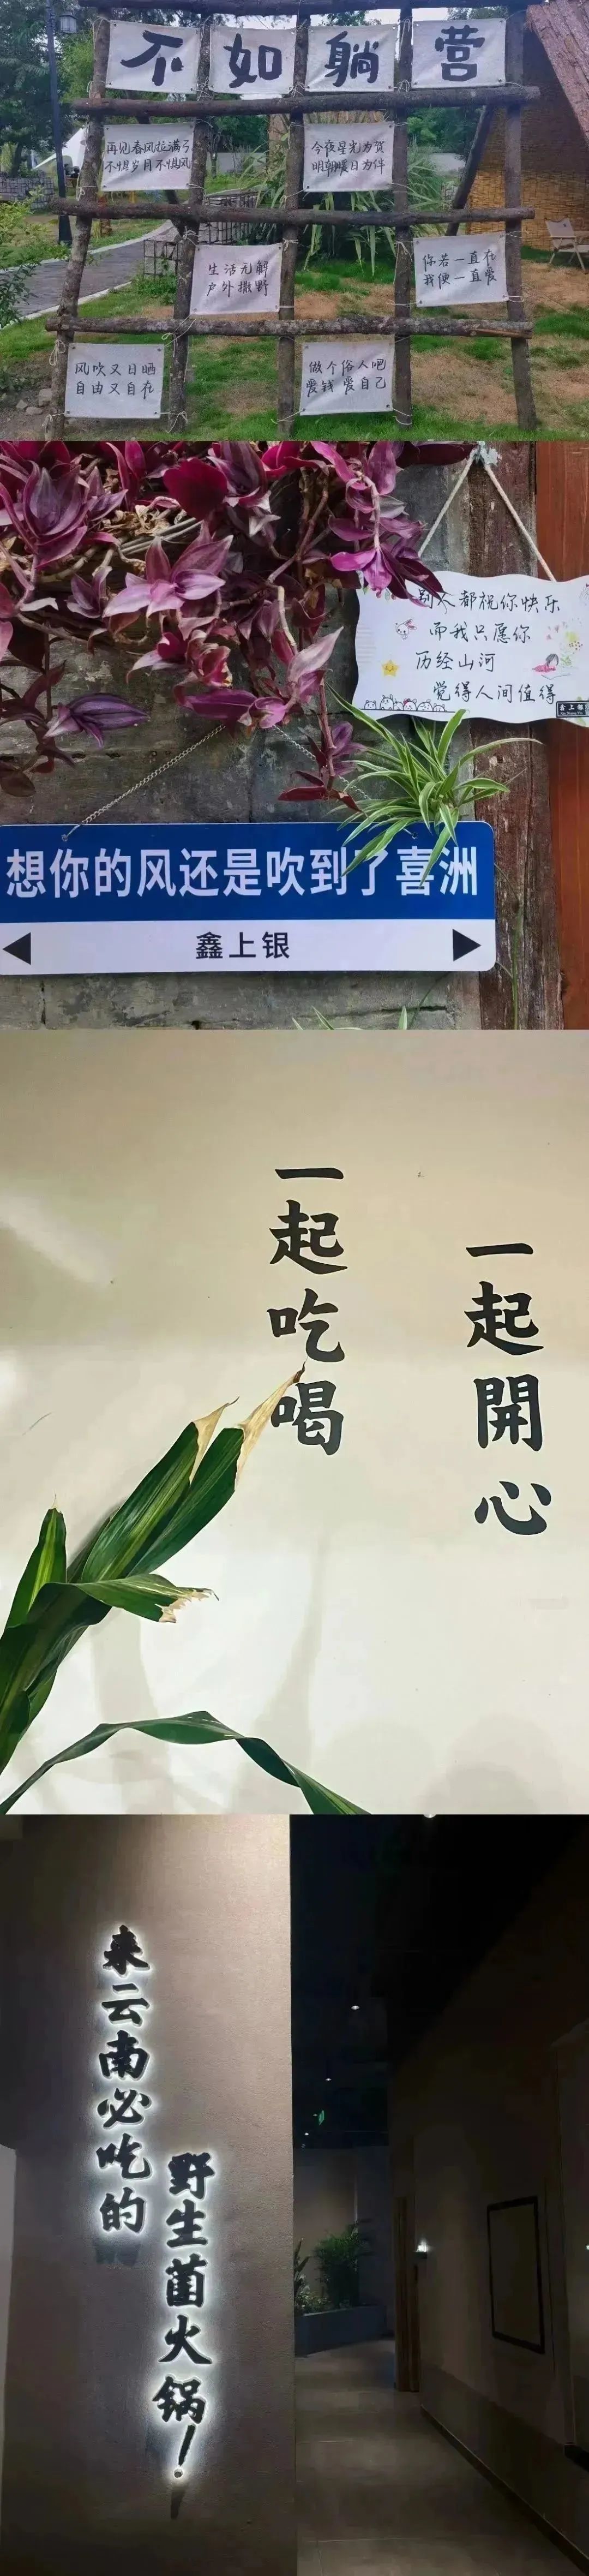 不如躺营
再见春风拉满弓
不惧岁月不惧风
今夜星光为赏
明朝暖日为伴
生活无解
户外撒野
你若一直在
我便一直爱
风吹又日晒
自由又自在
做个俗人吧
爱钱 爱自己
别人都祝你快乐
而我只愿你
历经山河
觉得人间值得
鑫上银
想你的风还是吹到了喜洲
鑫上银
一起吃喝
一起開心
来云南必吃的
野生菌火锅!